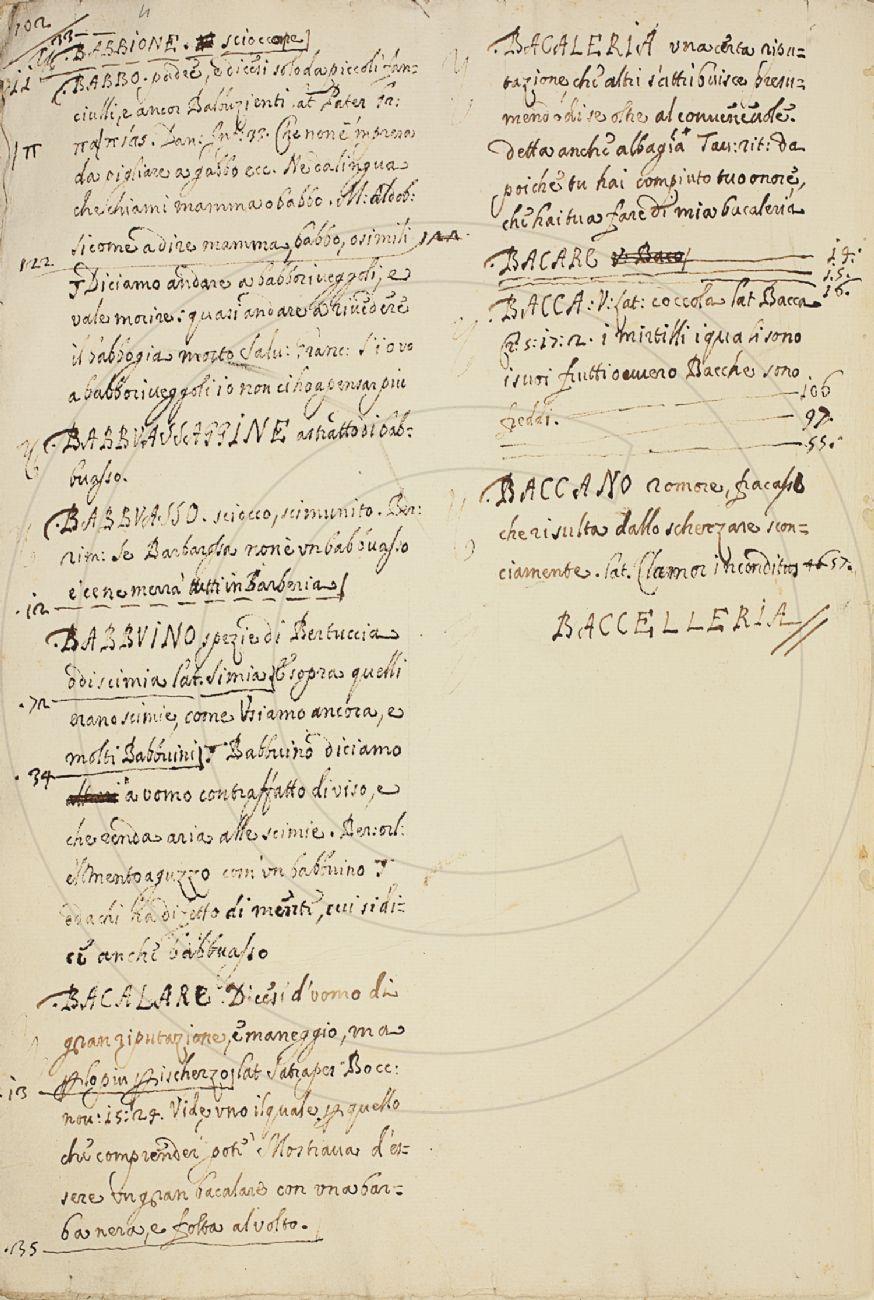 102
33
BABBIONE. scioccone]
11 BABBO. padre, e dicesi solo da piccoli fan=
ciulli, e ancor Balbuzienti. lat Pater
Dan: Inf: 32. Che non è impresa
da pigliare a gabbo ecc. Ne da lingua
che chiami mamma o babbo. M: aldob:
si come a dire mamma, babbo, o simili
122 Diciamo andare a babboriveggoli, e
vale morire: quasi andare a rivedere
il babbo gia morto Salv: Franc: S'io vo
a babboriveggoli io non ci ho a pensar piu
BABBUASSAGGINE astratto di bab=
buasso.
BABBVASSO. sciocco, scimunito. Ber:
rim: Se Barbarossa non è vn babbuasso
e' ce ne merrà tutti in Barberia
12
BABBVINO spezie di Bertuccia
o di scimia lat. Simia E sopra quelli
72
erano scimie, come Vsiamo ancora, e
molti Babbuini Babbuino diciamo
34
a vomo contraffatto di viso, e
che renda aria alle scimie. Ber: orl:
e'l mento aguzzo com' vn babbuino
o da chi ha difetto di mente, cui si di=
ce anche babbuasso
BACALARE Dicesi d'vomo di
gran riputazione, e maneggio, ma
p lo piu p ischerzo lat Satrapes Bocc:
13
nov: 15: 24. Vide vno il quale, p quello
che comprender potè Mostraua d'es=
sere vn gran bacalare con vna bar=
ba nera, e folta al volto.
135
BACALERIA vna certa ripu=
tazione che altri s'attribuisce presu=
mendo di se oltre al conueneuole.
detta anche albagia Tav: rit: da
poiche tu hai compiuto tuo onore,
che hai tu a fare di mia bacaleria
BACARE V. Baco 14.
15.
BACCA: V: lat: coccola lat Bacca 16.
5: 17: 2. i mirtilli i quali sono
i suoi frutti ouuero Bacche sono
106
freddi. 97.
55.
BACCANO romore, fracasso
che risulta dallo scherzare scon=
ciamente. lat. Clamor inconditus 57.
BACCELLERIA